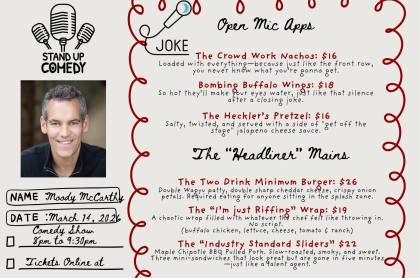 STAND UP
COMEDY
NAME: Moody McCarthy
DATE: March 14, 2026
Comedy Show
8pm to 9:30pm
Tickets Online at
JOKE
Open Mic Apps
The Crowd Work Nachos: $16
Loaded with everything—because just like the front row,
you never know what you're gonna get.
Bombing Buffalo Wings: $18
So hot they'll make your eyes water, just like that silence
after a closing joke.
The Heckler's Pretzel: $16
Salty, twisted, and served with a side of "get off the
stage" jalapeno cheese sauce.
The "Headliner" Mains
The Two Drink Minimum Burger: $26
Double Wagyu patty, double sharp cheddar cheese, crispy onion
petals. Required eating for anyone sitting in the splash zone.
The "I'm just Riffing" Wrap: $19
A chaotic wrap filled with whatever the chef felt like throwing in.
No script.
(buffalo chicken, lettuce, cheese, tomato & ranch)
The "Industry Standard Sliders" $22
Maple Chipotle BBQ Pulled Pork. Slow-roasted, smoky, and sweet.
Three mini-sandwiches that look great but are gone in five minutes
—just like a talent agent.